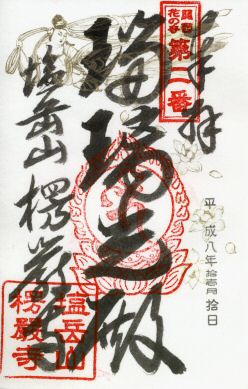 奉拝
関西
花の寺
第二番
平成八年拾壱月拾日
瑠璃光殿
塩岳山 楞厳寺
塩岳山
楞厳寺